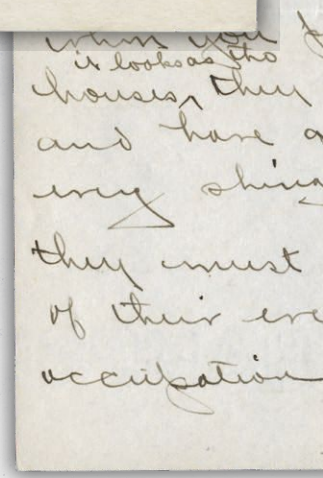 when you
it looks as tho
houses, they
and have a
every shing
they must
of their eve
occupation